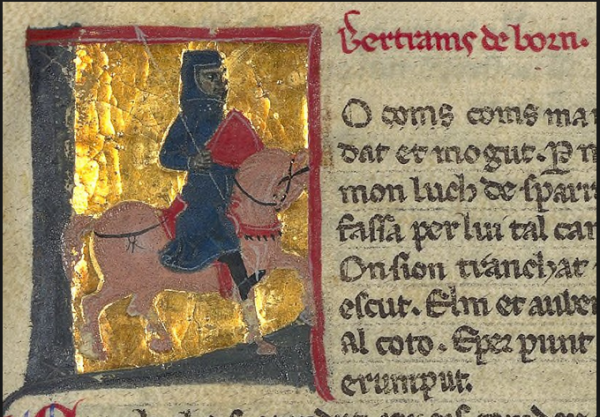 Bertrams de born.
O coms coms ma
dat et mogut. P
mon luch de sparr
fassa per lui tal can
Onsion tranchat
escut. Elm et auber
al coto. Eper punt
erumput.